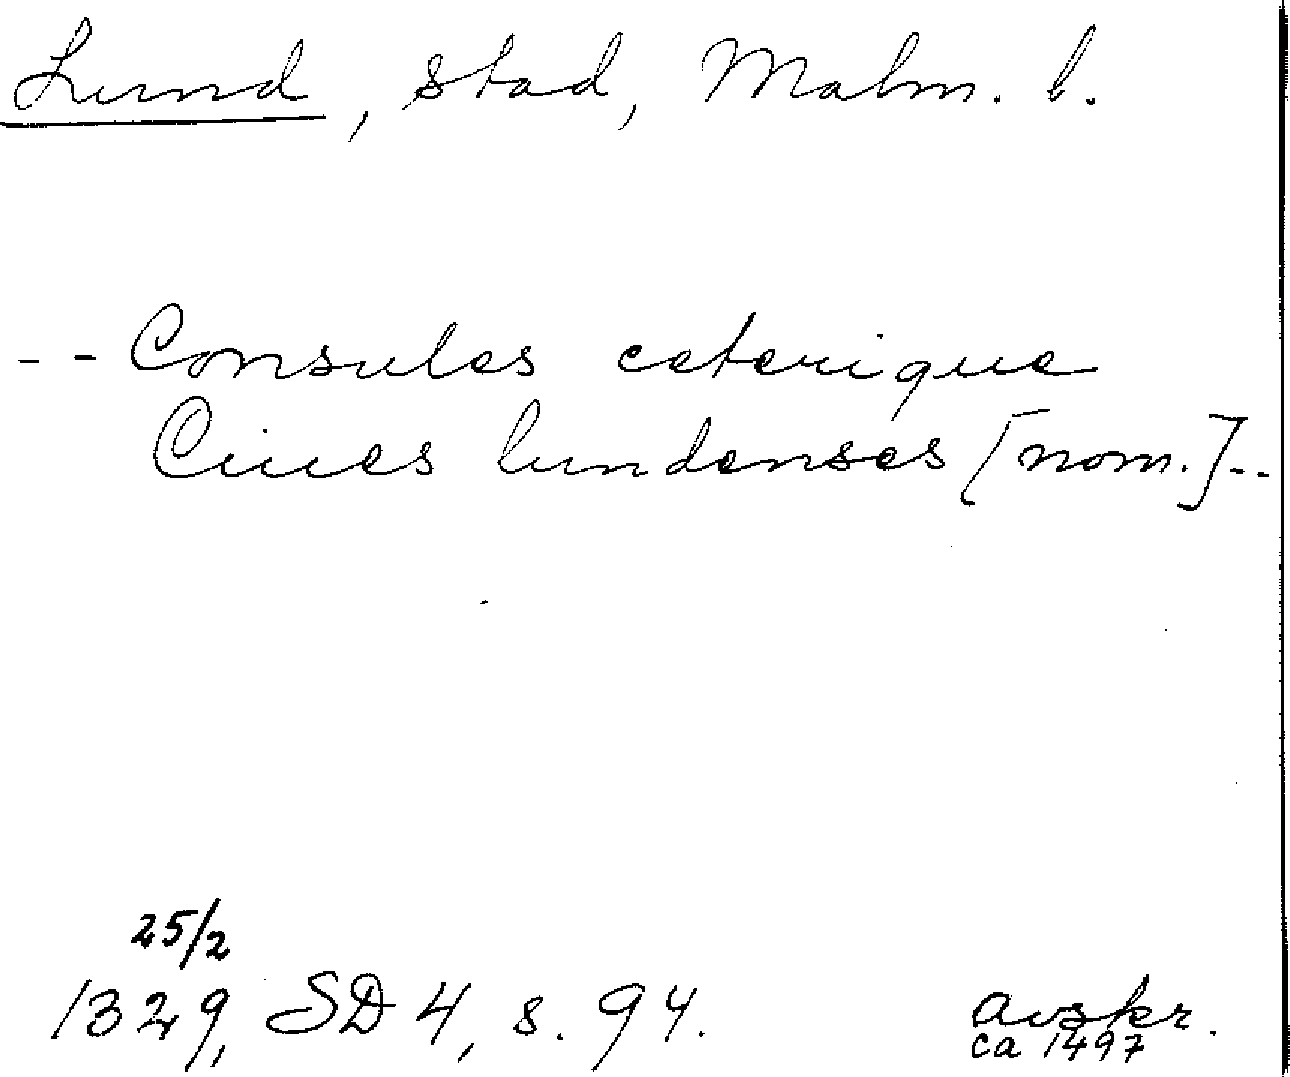 Lund, stad, Malm. l.
-- Consules ceterique
Ciues lundenses [nom.]--
25/2
1329, SD 4, s. 94. avskr.
ca 1497